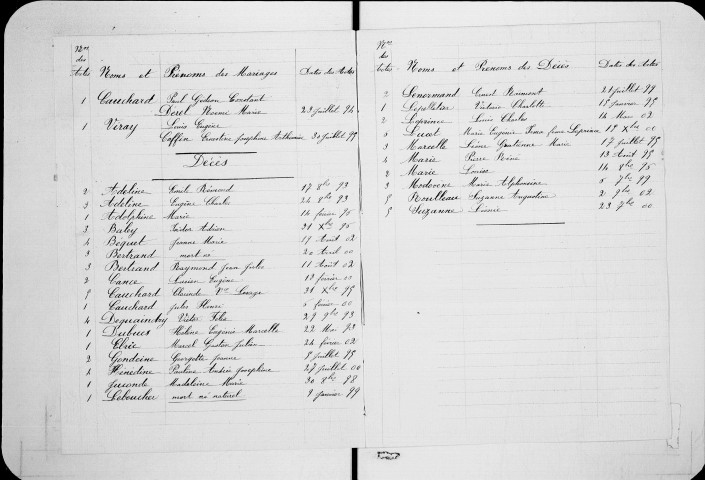 Nos
des
Actes Noms et Prénoms des Mariages Dates des Actes
1 Cauchard Paul Gédéon Constant
Derel Noémie Marie 23 juillet 94
1 Viray Louis Eugène
Caffin Ernestine Joséphine Anthémise 30 juillet 95
Décès
2 Adeline Emile 17 8bre 93
3 Adeline Eugène Charles 24 8bre 93
1 Adolphine Marie 14 février 95
3 Baley Isidor Adrien 31 Xbre 95
4 Bequet Jeanne Marie 17 Août 02
3 Bertrand mort né 20 Avril 00
3 Bertrand Raymond Jean Jules 11 Août 02
2 Cance Lucien Eugène 13 février 00
5 Cauchard Vve Lesage 31 Xbre 95
1 Cauchard Jules Henri 5 février 00
4 Victor Félix 29 9bre 93
1 Dubucs Hélène Eugénie Marcelle 22 Mai 93
1 Elvie Marcel Gaston Julien 24 février 02
2 Gondoine Georgette Jeanne 5 juillet 95
4 Pauline Joséphine 27 juillet 00
1 Madeleine Marie 30 8bre 98
1 Leboucher mort né naturel 9 janvier 99
Nos
des
Actes Noms et Prénoms des Décès Dates des Actes
2 Lenormand Ernest 21 juillet 99
1 Lepelletier Victoire Charlotte 15 janvier 95
2 Leprince Louis Charles 14 Mai 02
Marie Eugénie Leprince 12 Xbre 00
3 Marcelle Marie 17 juillet 95
4 Marie Pierre 13 Août 95
2 Marie Louise 14 8bre 95
3 Marie Alphonsine 5 7bre 99
5 Roulleau Suzanne Augustine 2 9bre 02
5 Suzanne 23 7bre 00